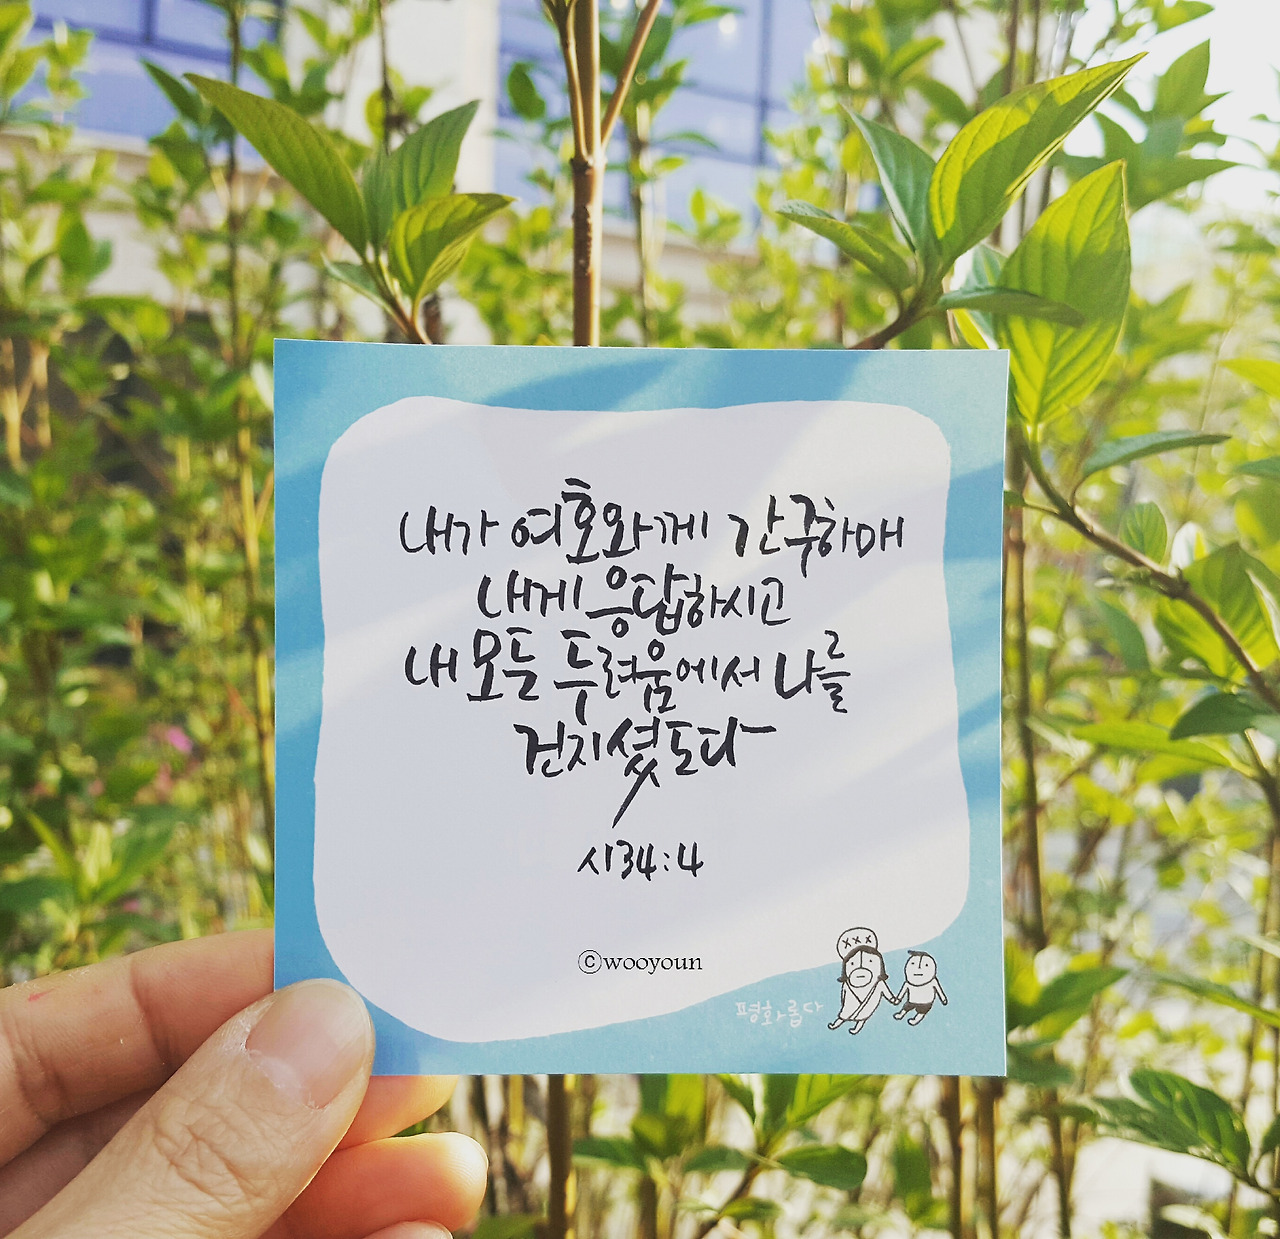 내가 여호와께 간주하매
내게 응답하시고
내 모든 두려움에서 나를
건지셨도다
시34:4
ⓒwooyoun
평화롭다
xxx